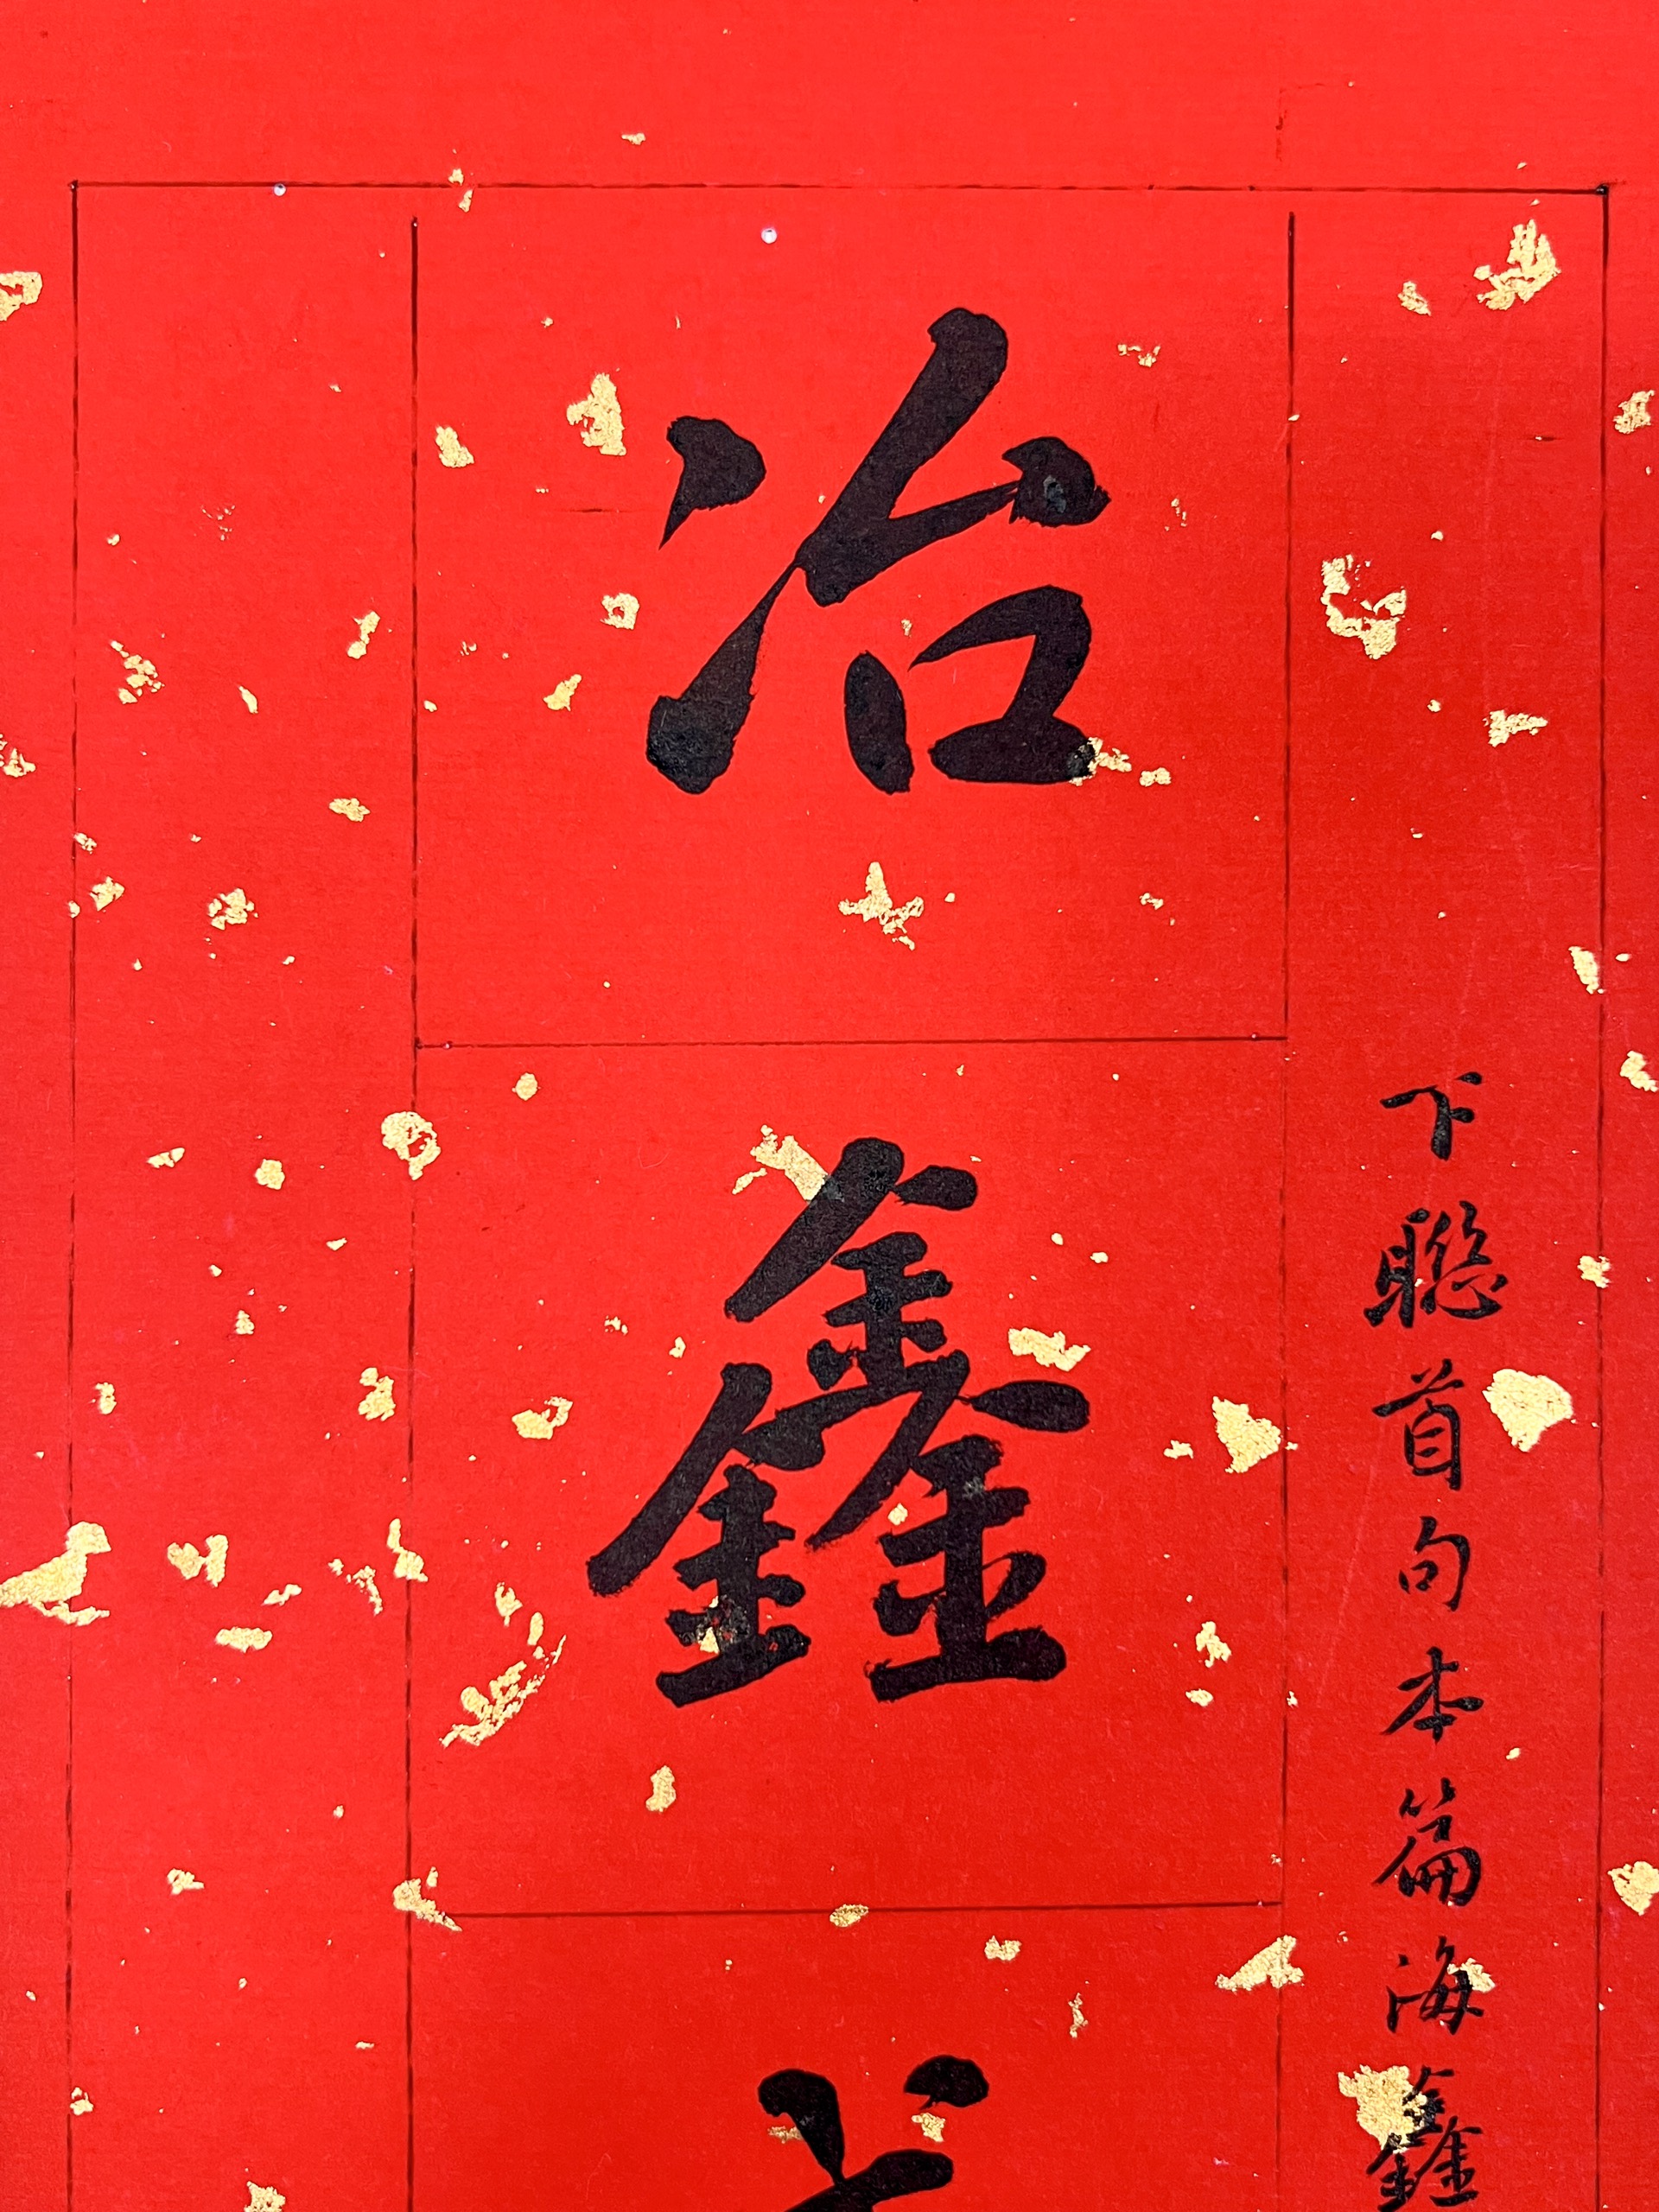 下聯首句本篇海鑫
冶鑫